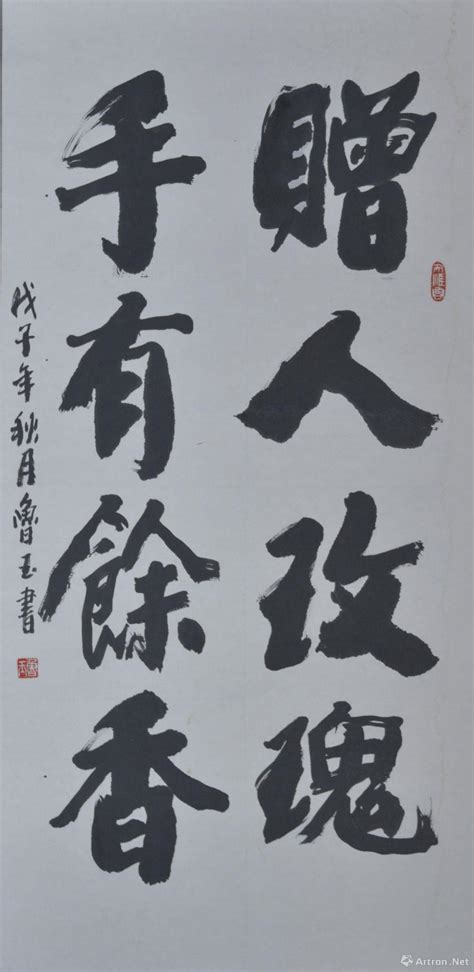 贈人玫瑰
手有餘香
戊子年秋月魯玉書
Artron.Net